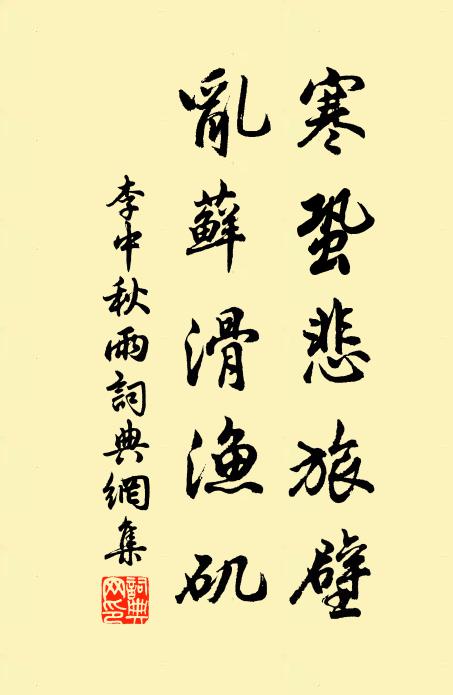 寒蛩悲旅壁
亂蘚滑渔矶
李中秋雨詞典網集
詞典
网印